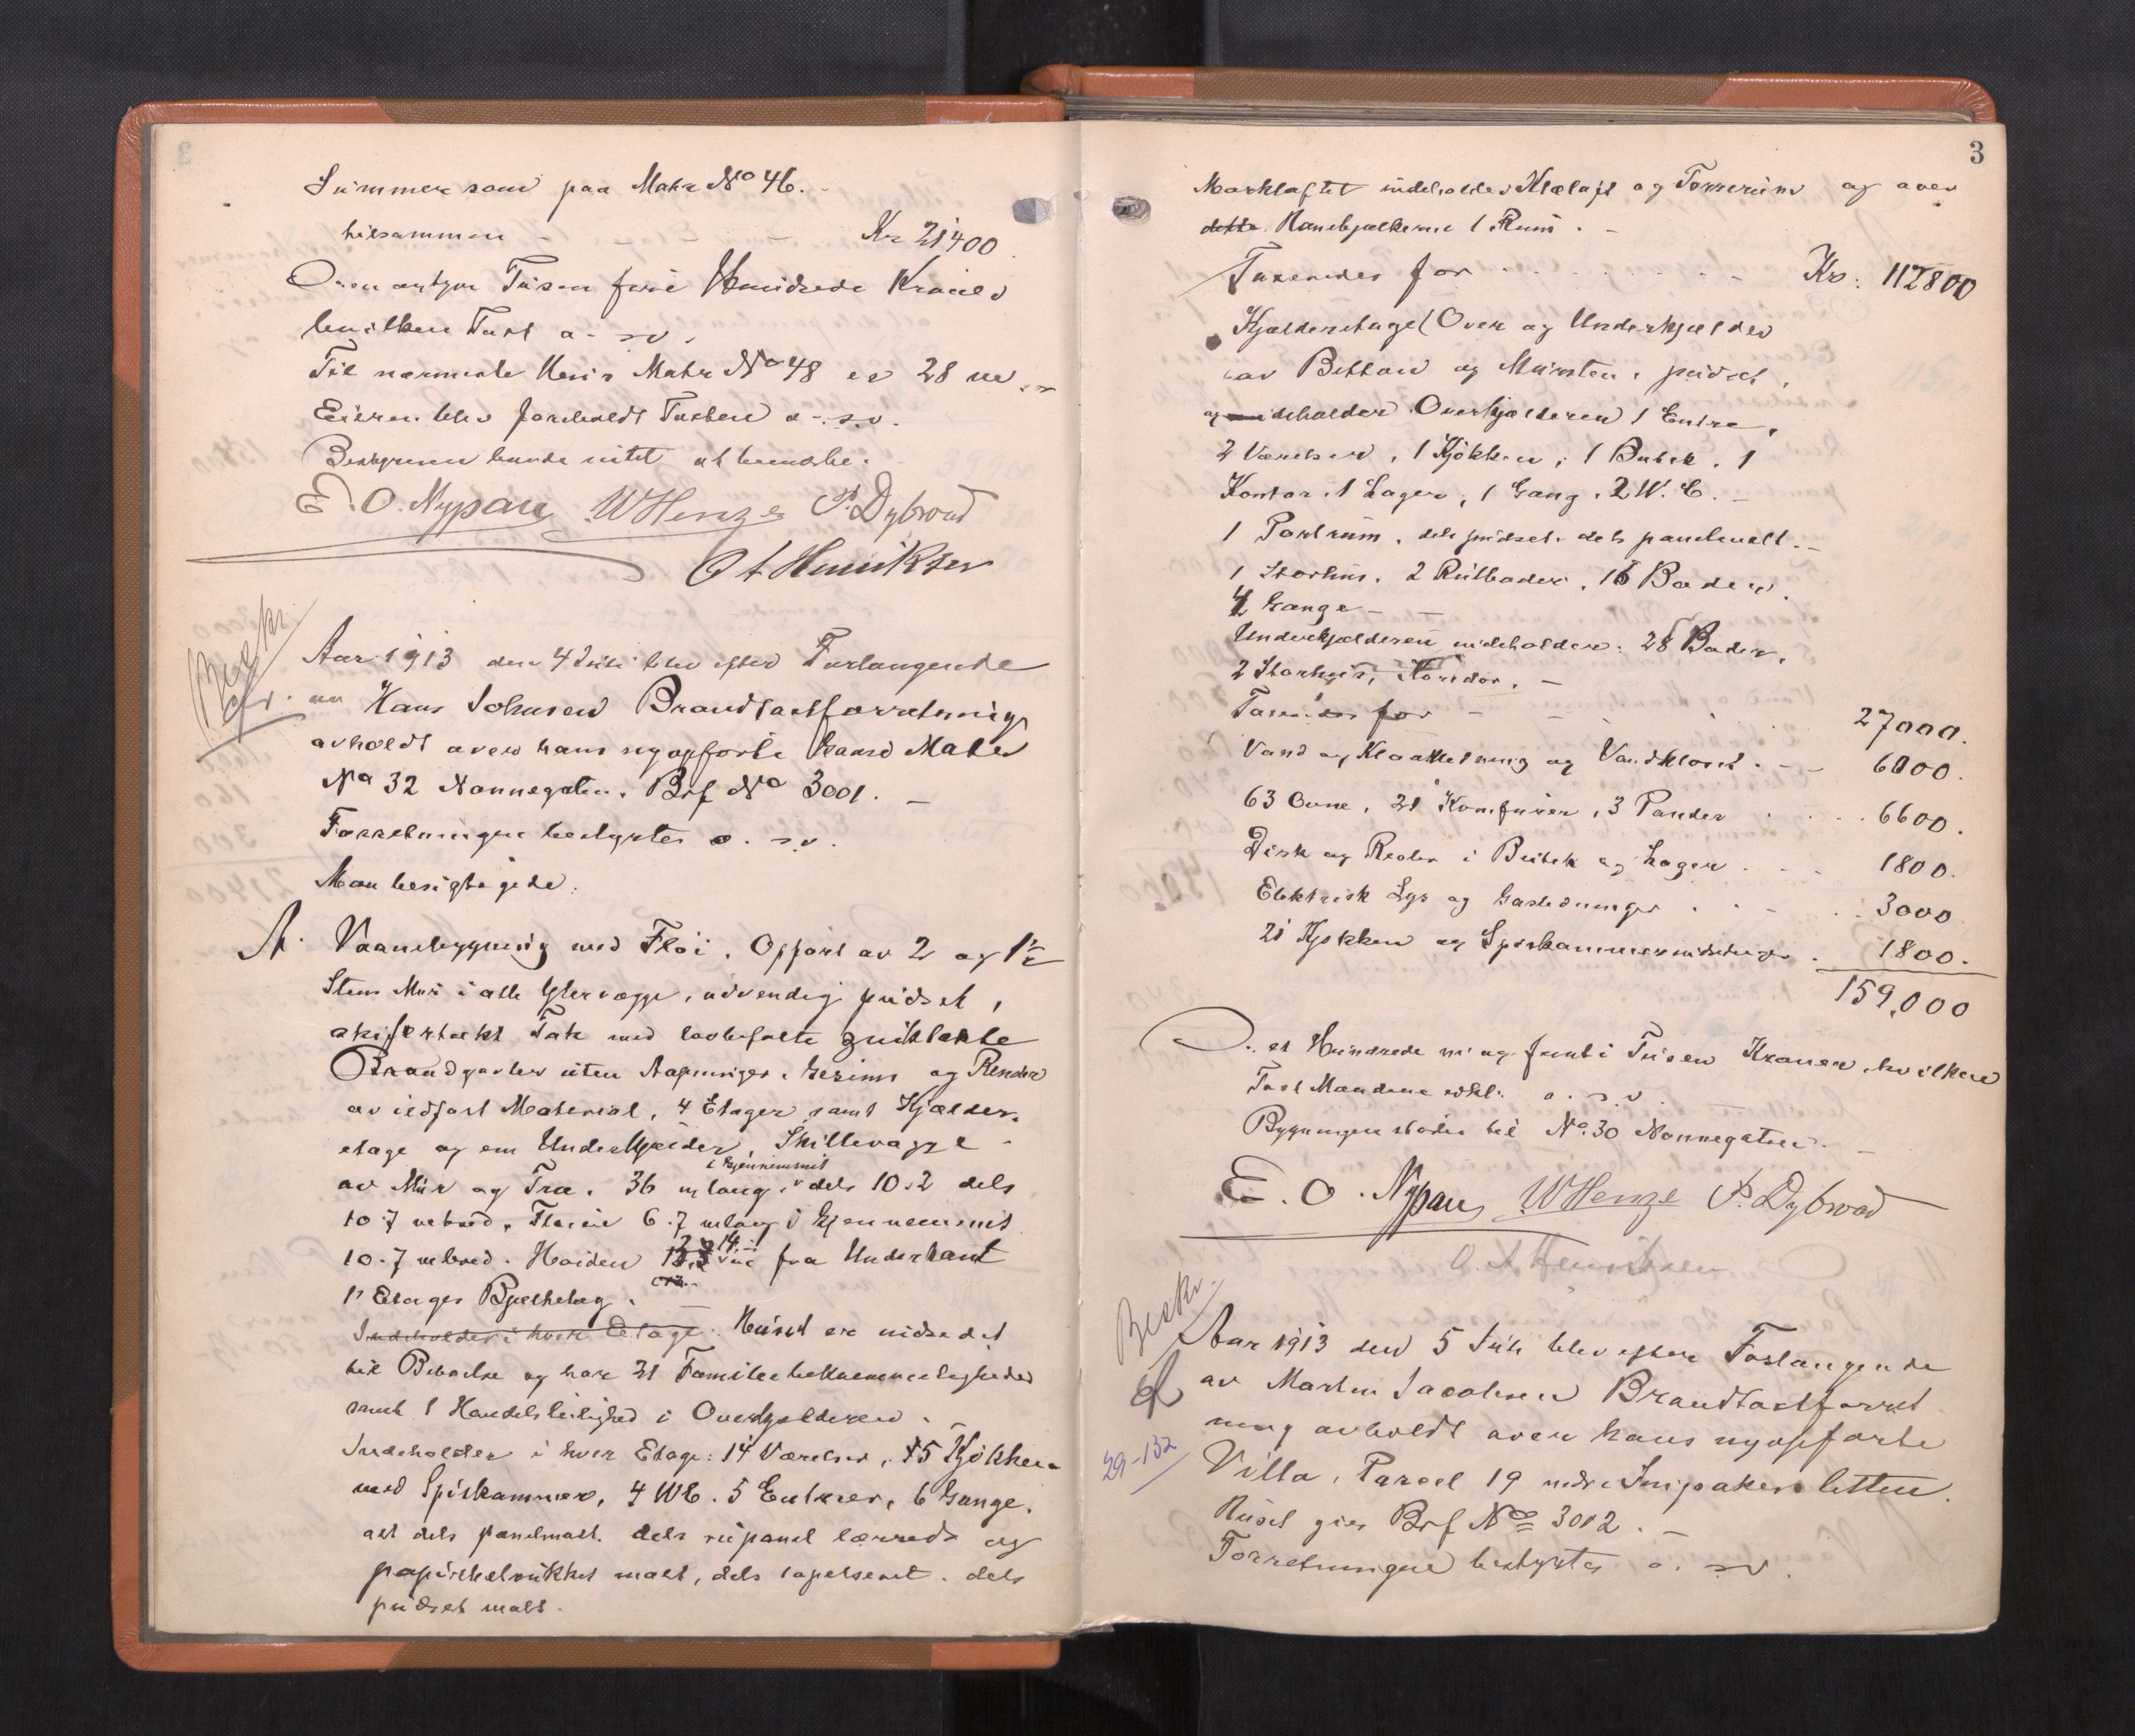 Summer som paa Matr No 46.
tilsammen - - - - Kr 21400
Tusen fire Hundrede Kroner
hvilken Taxt o. s. v.
Til nærmeste Hus Matr No 48 er 28 m
Eieren blev foreholdt Taxten o. s. v.
Bestyreren havde intet at bemerke.
E. O. Nypan WHenze P. Dybwad
O A Henriksen
Beskr.
Aar 1913 den 4 Juli blev efter Forlangende
av Hans Johnsen Brandtaxtforretning
avholdt over hans nyopførte Gaard Matr
No 32 Nonnegaten. Brf No 3001. -
Forretningen bestyrtes o. s. v.
Man besigtigede:
A. Vaanebygning med Fløi. Opført av 2 og 1½
Stens Mur i alle Ydervægge, udvendig pudset,
skifertækt Tak med
Brandgavler uten Aapninger. Gesims og Render
av ildfast Material, 4 Etager samt Kjælder-
etage og em Underkjælder, Skillevægge
i Gjennemsnit
av Mur og Træ. 36 m lang, dels 10.2 dels
10.7 m bred. Fløien 6.7 m lang i Gjennemsnit
14.1
10.7 m bred. Høiden fra Underkant
1' Etages Bjælkelag.
Indeholder i hver Etage. Huset er indredet
til Beboelse og har 21 Familiebekvemmeligheder
samt 1 Handelsleilighed i Overkjælderen.
Indeholder i hver Etage: 14 Værelser, 5 Kjøkken
med Spiskammer, 4 WC. 5 Entreer, 6 Gange.
alt dels panelmalt. dels rupanel lærreds og
papirbetrukket malt, dels tapetseret. dels
pudset malt.
3
Mørkloftet indeholder Klæloft og Tørrerum og over
dette Hanebjælkerne 1 Rum. -
Taxeredes for - - - Kr: 112800
Kjælderetage (Over og Underkjælder
av Betton og Mursten, pudset,
og indeholder Overkjælderen 1 Entre,
2 Værelser, 1 Kjøkken, 1 Butik, 1
Kontor, 1 Lager, 1 Gang, 2 W. C. -
1 Portrum, dels pudset, dels panelmalt. -
1 Storhus. 2 Rulboder, 16 Boder.
4 Gange - -
Underkjælderen indeholder: 28 Boder,
2 Storhus, Koridor. -
Taxeredes for - - 27000.
Vand og Kloakledning og Vandkloset. - - 6000.
63 Ovne, 21 Komfurer, 3 Pander . . . 6600.
Disk og Reoler i Butik og Lager . . . 1800.
Elektrisk Lys og Gasledninger . . . 3000
21 Kjøkken og Spiskammerindredninger . 1800.
159,000
et Hundrede ni og femti Tusen Kroner, hvilken
Taxt Mændene erkl: o. s. v.
Bygningen støder til No 30 Nonnegaten. -
E. O. Nypan WHenze P. Dybwad
O. A Henriksen
Beskr.
Aar 1913 den 5 Juli blev efter Forlangende
av Martin Jacobsen Brandtaxtforret
ning avholdt over hans nyopførte
29-132
Villa, Parcel 19 nedre
Huset gies Brf No 3002. -
Forretningen bestyrtes o. s v.